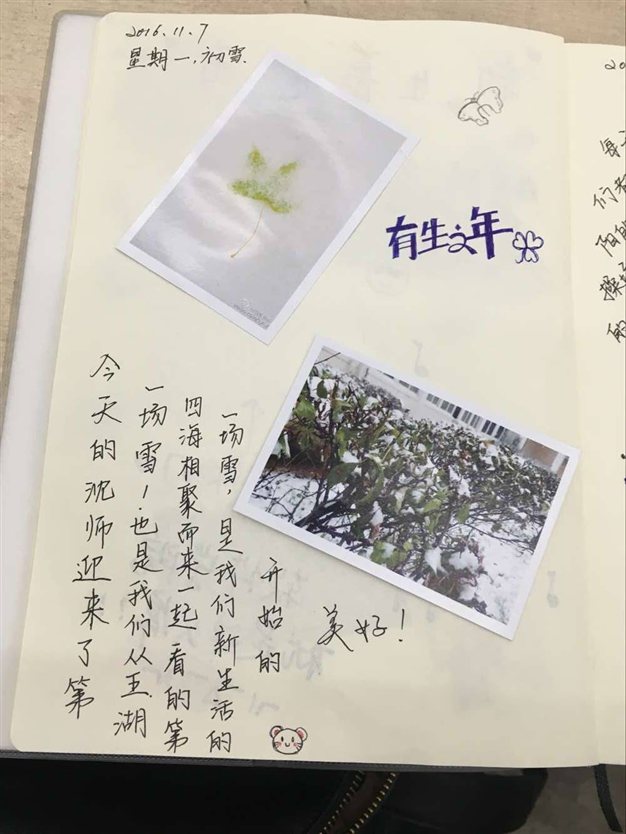 2016.11.7
星期一,初雪.
有生之年
今天的沈师迎来了第
一场雪!也是我们从五湖
四海相聚而来一起看的第
一场雪,是我们新生活的
开始的
美好!